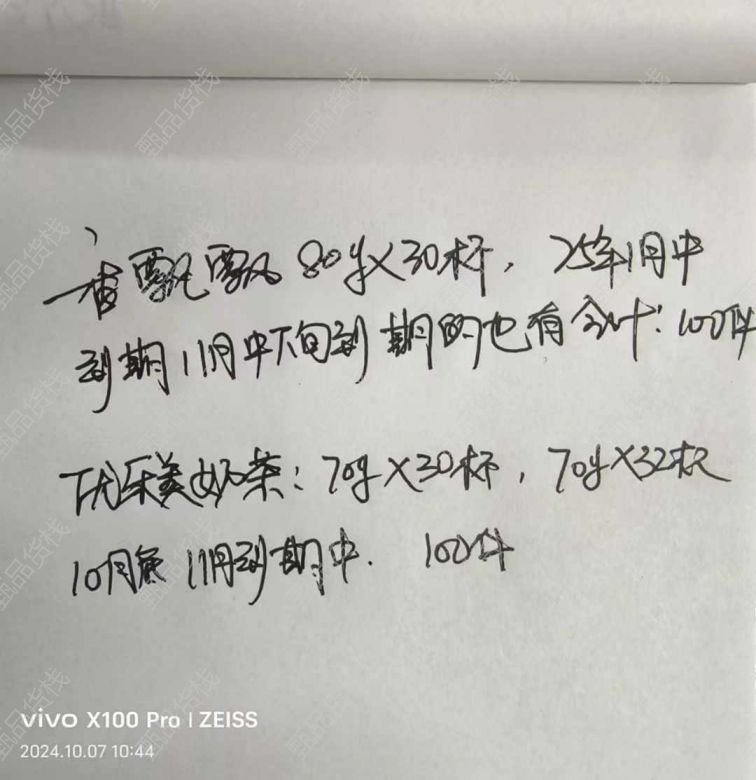 香飘飘 80g×30杯，25年1月中
到期 11月中下旬到期的也有合计：100件
优乐美奶茶：70g×30杯，70g×32杯
10月底 11月到期中. 100件
vivo X100 Pro | ZEISS
2024.10.07 10:44
甄品货栈